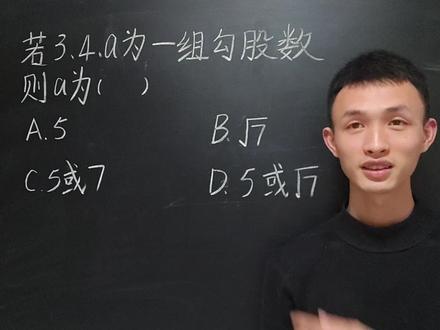 若3.4.a为一组勾股数
则a为( )
A.5 B.√7
C.5或7 D.5或√7